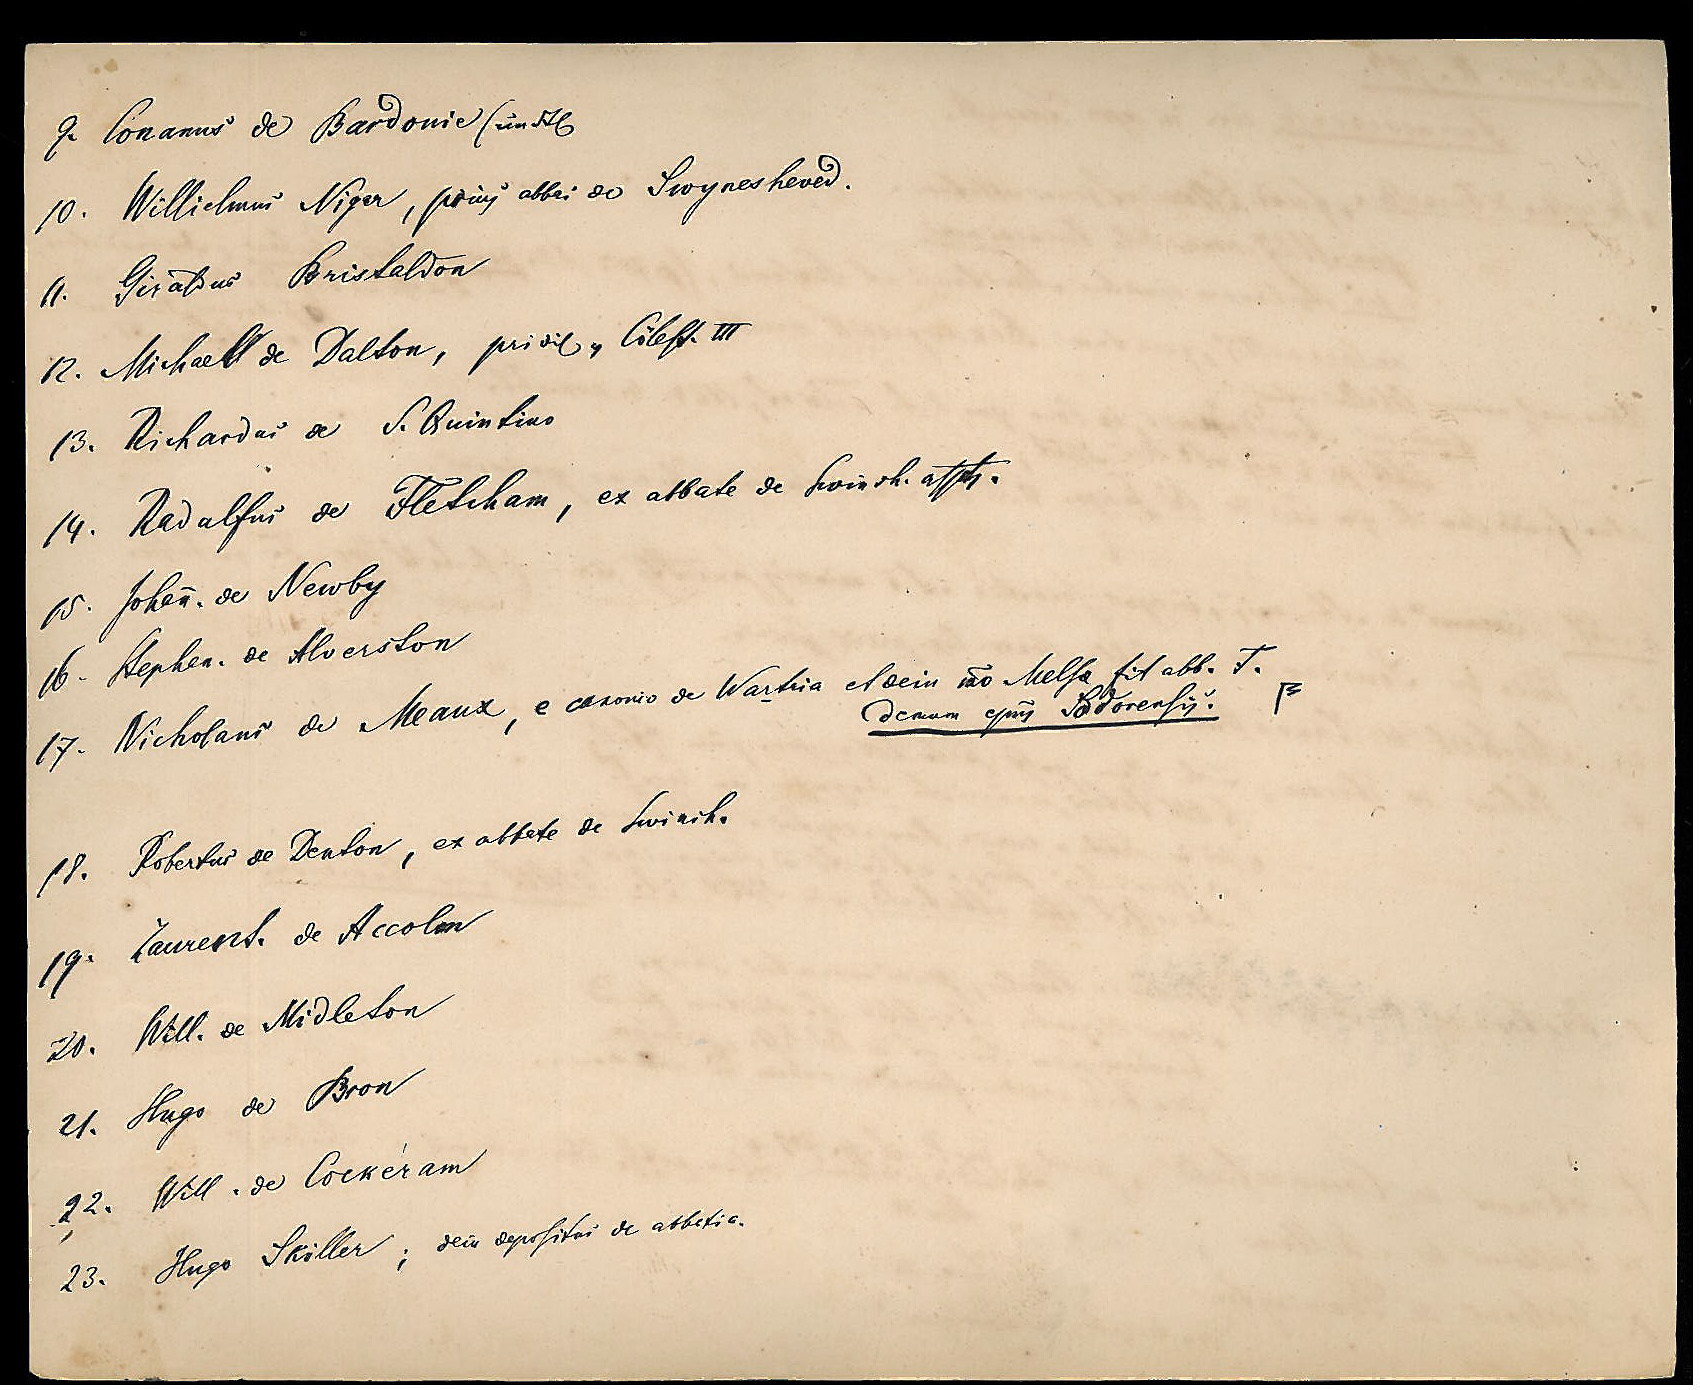 9. Conanus de Bardonie
10. Willielmus Niger, prius abbas de Swynesheved.
11. Giraldus Bristaldon
12. Michael de Dalton, privil. Cölest. III
13. Richardus de S. Quintino
14. Radalfus de Fletcham, ex abbate de Swinsh.
15. Johan̄. de Newby
16. Stephen. de Alverston
17. Nicholaus de Meaux, e canonico de Wartria et dein Melsæ fit abb. F.
demum epūs Sodorensis.
18. Robertus de Denton, ex abbate de Swinsh.
19. Laurent. de Accolm
20. Will. de Midleton
21. Hugo de Bron
22. Will. de Cockeram
23. Hugo Skiller; dein depositus de abbatia.